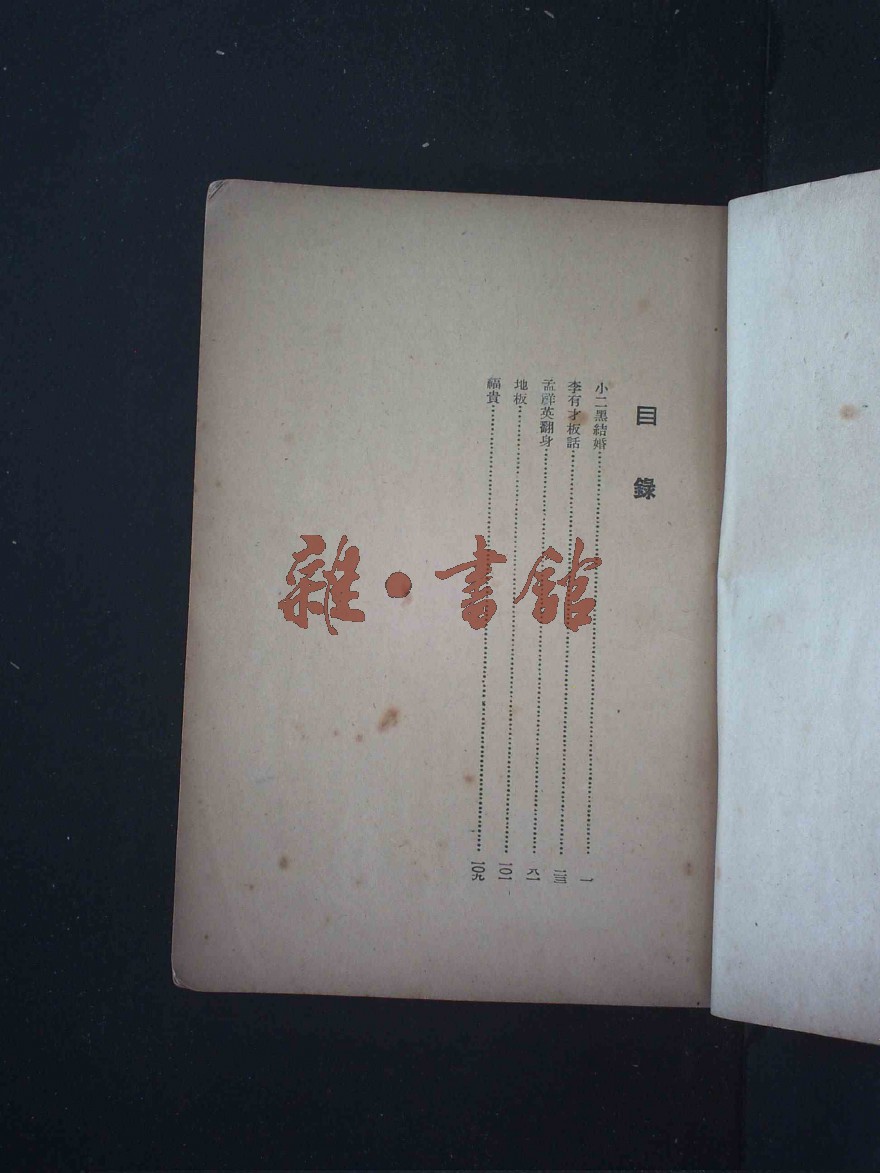 目錄
小二黑結婚……一
李有才板話……二三
孟祥英翻身……八一
地板……一〇一
福貴……一〇九
雜·書館